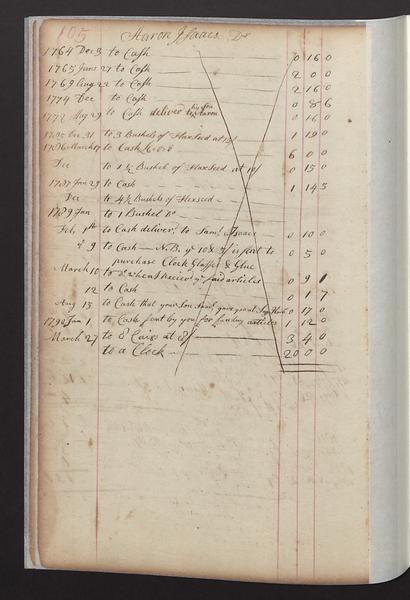 105 Aaron Isaacs Dr
1764 Dec 3 to Cash 0 16 0
1765 June 27 to Cash 2 0 0
1769 Aug 23 to Cash 2 16 0
1774 Dec to Cash 0 8 6
1772 May 29 to Cash deliver'd by Son Aaron 0 16 0
31 to 3 Bushels of Flaxseed at 13/ 1 19 0
1786 March 17 to Cash 6 0 0
Dec to 1 ½ Bushel of Flaxseed at 10/ 0 15 0
1787 Jan 29 to Cash 1 14 5
Dec to 4 ½ Bushels of Flexseed
1789 Jan to 1 Bushel Do
Feb 1st to Cash deliver'd to Saml Isaacs 0 10 0
9 to Cash — N.B. ye 10 & 5/ is sent to 0 5 0
purchase Clock Glasses & Glue
March 10 to Do when I Receiv'd ye said articles 0 9 1
12 to Cash 0 1 7
Aug 15 to Cash that your Son Saml gave 0 17 0
1790 Jan 1 to Cash sent by you for sundry articles 1 12 0
March 27 to 8 at 8/ 3 4 0
to a Clock 20 0 0